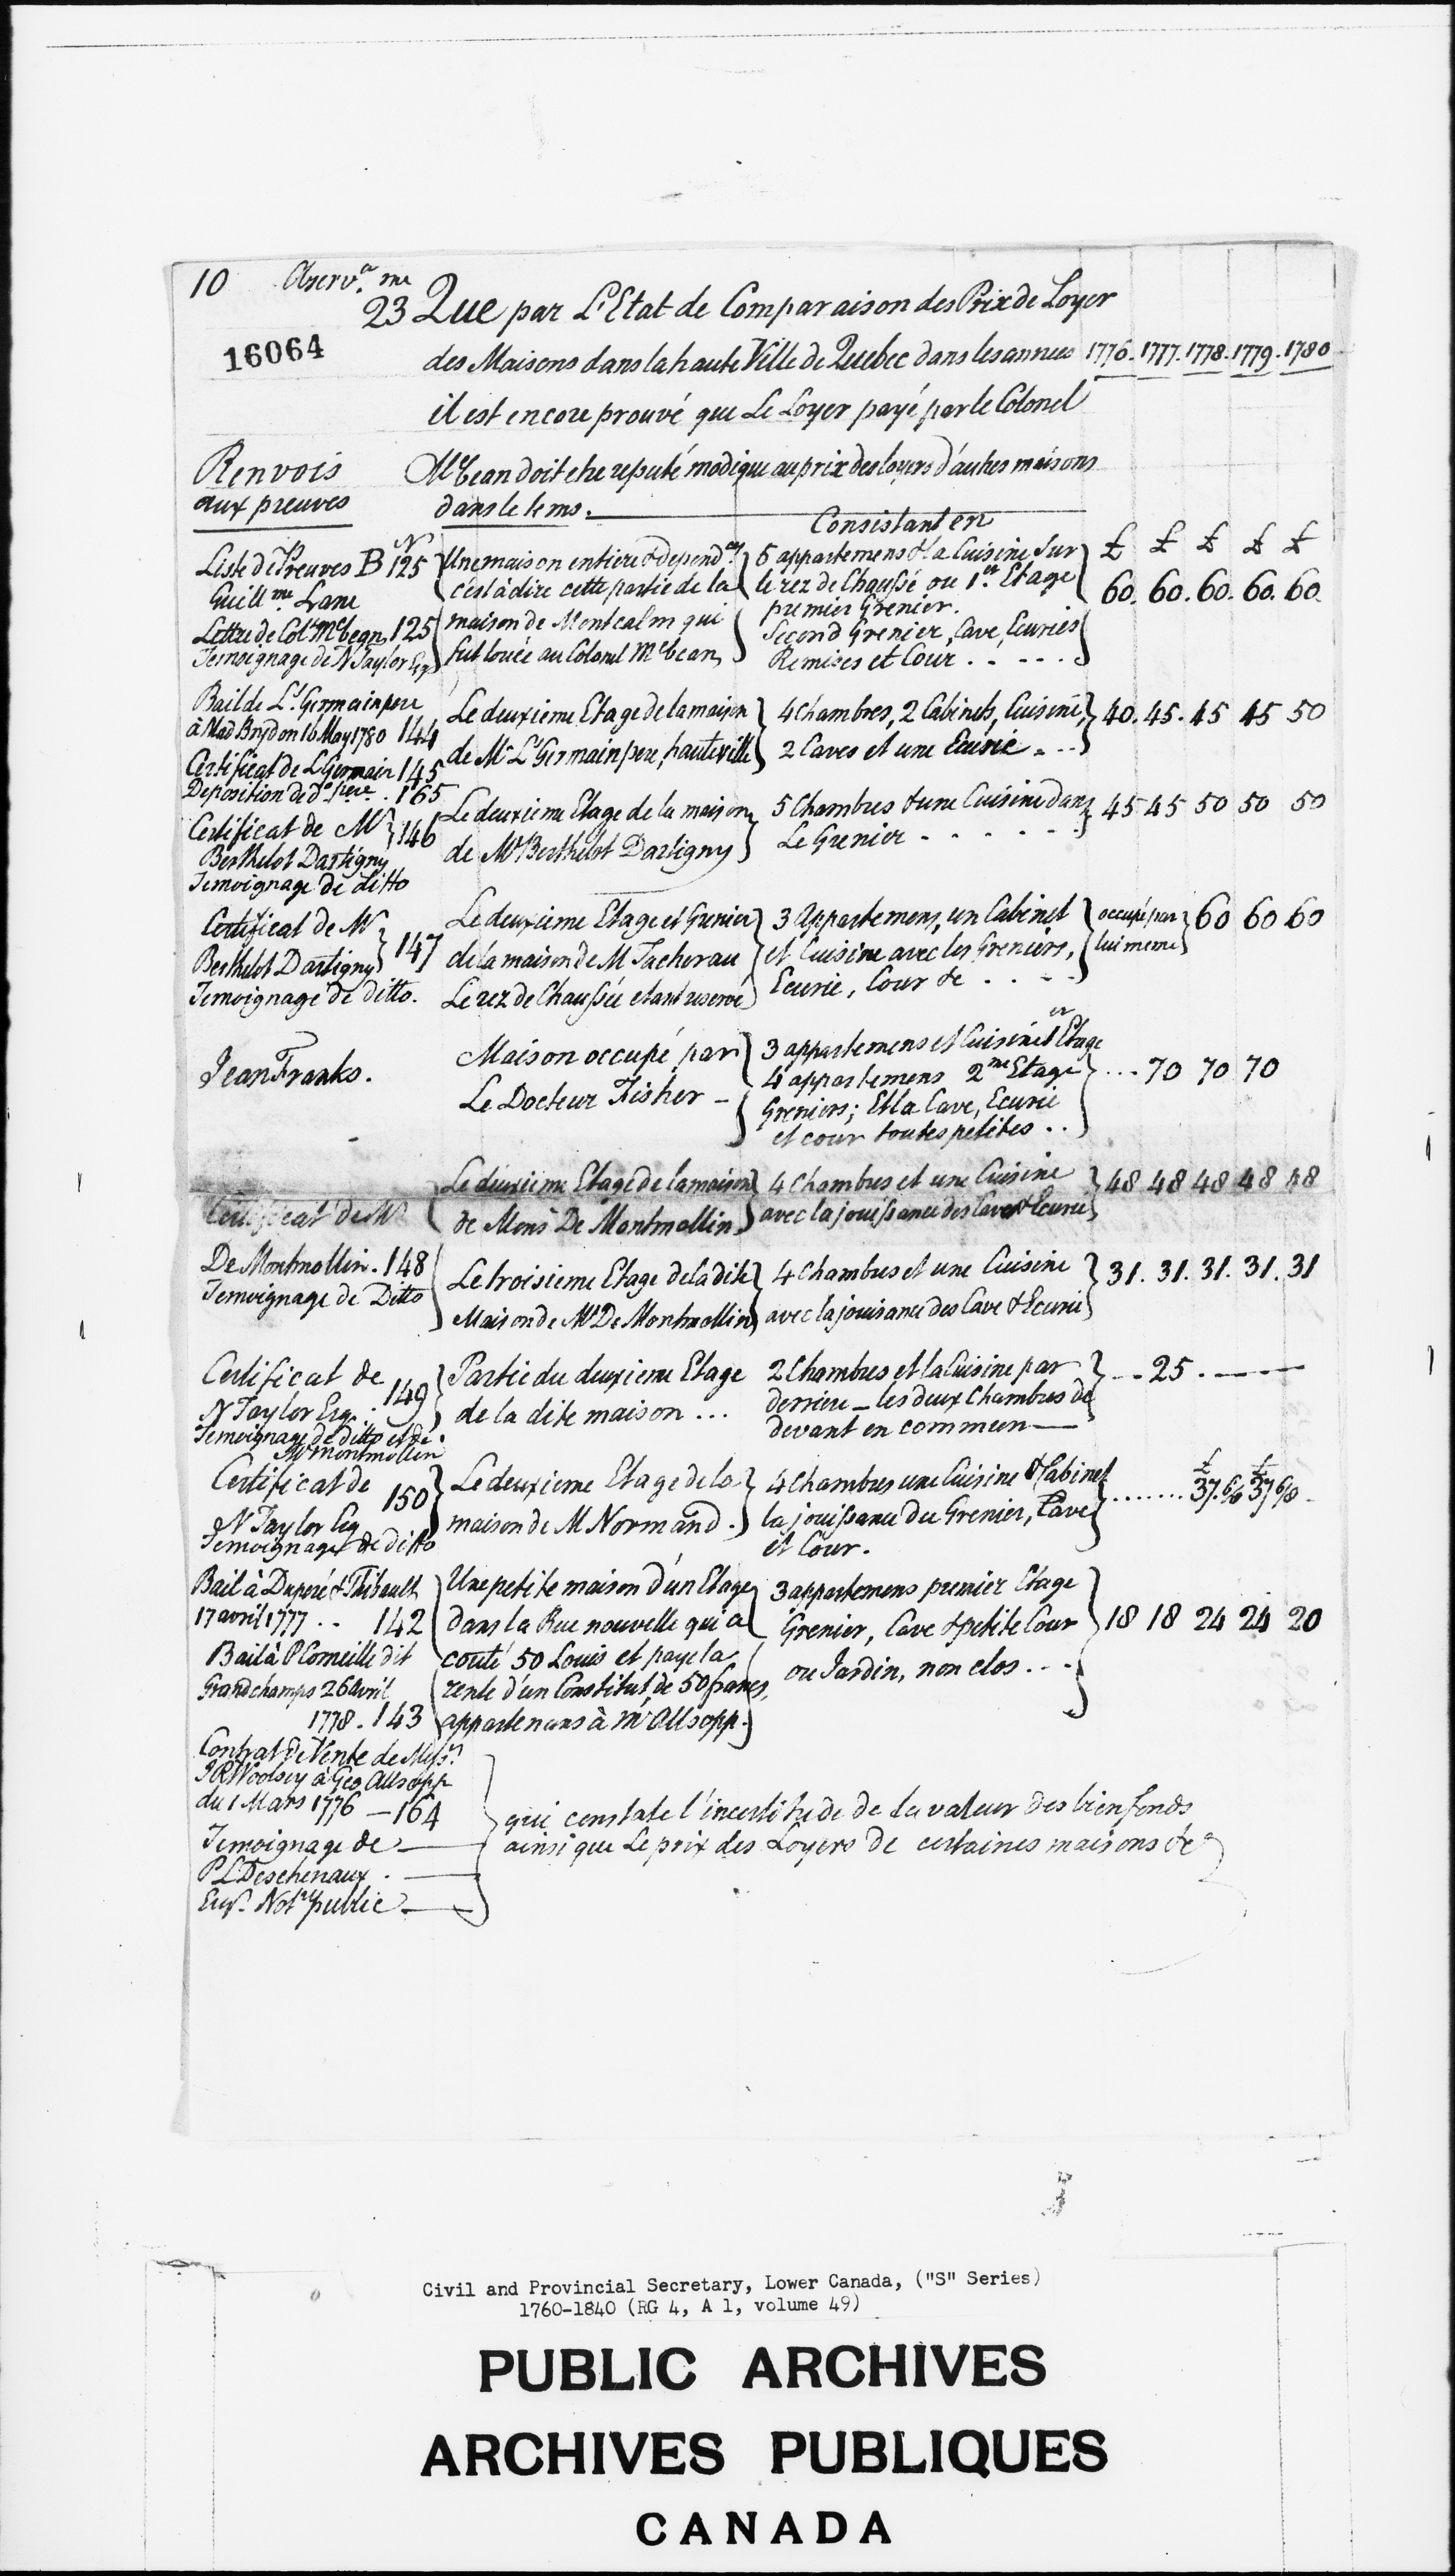 10 Observ.n me
23 Que par L'Etat de Comparaison des Prix de Loyer
16064
des Maisons dans la haute Ville de Quebec dans les annees 1776. 1777. 1778. 1779. 1780
il est encore prouvé que Le Loyer payé par le Colonel
Renvois Mcbean doit etre reputé modique au prix des loyers d'autres maisons
aux preuves dans le tems.
Consistant en
Liste de Preuves B No 125 Une maison entiere & depend.ces 5 appartemens & la Cuisine sur £ £ £ £ £
Guillme. Lane c'est à dire cette partie de la le rez de Chaussé ou 1.er Etage 60. 60. 60. 60. 60.
Lettre de Col. Mcbean 125 maison de Montcalm qui premier Grenier.
Temoignage de N Taylor Esqr fut louée au Colonel Mcbean Second Grenier, Cave, Ecuries
Remises et Cour . . . . .
Bail de Lt. Germain pere Le deuxieme Etage de la maison 4 Chambres, 2 Cabinets, Cuisine, 40. 45. 45 45 50
à Mad Brydon 16 May 1780 144 de Mr Lt Germain pere, haute ville 2 Caves et une Ecurie . . .
Certificat de L Germain 145
Deposition de do. pere . 165
Certificat de Mr 146 Le deuxieme Etage de la maison 5 Chambres & une Cuisine dans 45 45 50 50 50
Berthelot Dartigny de Mr Berthelot Dartigny Le Grenier - - - - - -
Temoignage de ditto
Certificat de Mr Le deuxieme Etage et Grenier 3 Appartemens, un Cabinet occupé par 60 60 60
Berthelot Dartigny 147 de la maison de M Tachereau et Cuisine avec les Greniers, lui meme
Temoignage de ditto. Le rez de Chaussée etant reservé Ecurie, Cour &c . . - -
Jean Franks. Maison occupé par 3 appartemens et Cuisine 1er Etage
Le Docteur Fisher - 4 appartemens 2me Etage . . . 70 70 70
Greniers; Et la Cave, Ecurie
et cour toutes petites . .
Le deuxieme Etage de la maison 4 Chambres et une Cuisine 48 48 48 48 48
Certificat de Mr de Monsr De Montmollin avec la jouissance des Cave & Ecurie
De Montmollin. 148 Le troisieme Etage de la dite 4 Chambres et une Cuisine 31. 31. 31. 31. 31
Temoignage de Ditto Maison de Mr De Montmollin avec la jouisance des Cave & Ecurie
Certificat de Partie du deuxieme Etage 2 Chambres et la Cuisine par . . 25 . ———
N Taylor Esq. 149 de la dite maison . . . derriere — les deux Chambres de
Temoignage de ditto et de devant en commun —
Mr Montmollin
Certificat de 150 Le deuxieme Etage de la 4 Chambres une Cuisine & Cabinet £ £
N Taylor Esq maison de M Normand. la jouissance du Grenier, Cave . . . . . . . 37. 6/8 37 6/8
Temoignage de ditto et Cour.
Bail à Duperé & Thibault Une petite maison d'un Etage 3 appartemens premier Etage
17 avril 1777 . . 142 dans la Rue nouvelle qui a Grenier, Cave & petite Cour 18 18 24 24 20
Bail à P Corneille dit couté 50 Louis et paye la ou Jardin, non clos. . . .
Grandchamps 26 Avril rente d'un Constitut, de 50 francs,
1778. 143 appartenans à Mr Allsopp.
Contrat de Vente de Messr.
J R Woolsey à Geo Allsopp
du 1 Mars 1776 — 164 qui constate l'incertitude de la valeur des bienfonds
Temoignage de — ainsi que Le prix des Loyers de certaines maisons &c
P L Deschenaux . —
Not.re public —
Civil and Provincial Secretary, Lower Canada, ("S" Series)
1760-1840 (RG 4, A 1, volume 49)
PUBLIC ARCHIVES
ARCHIVES PUBLIQUES
CANADA